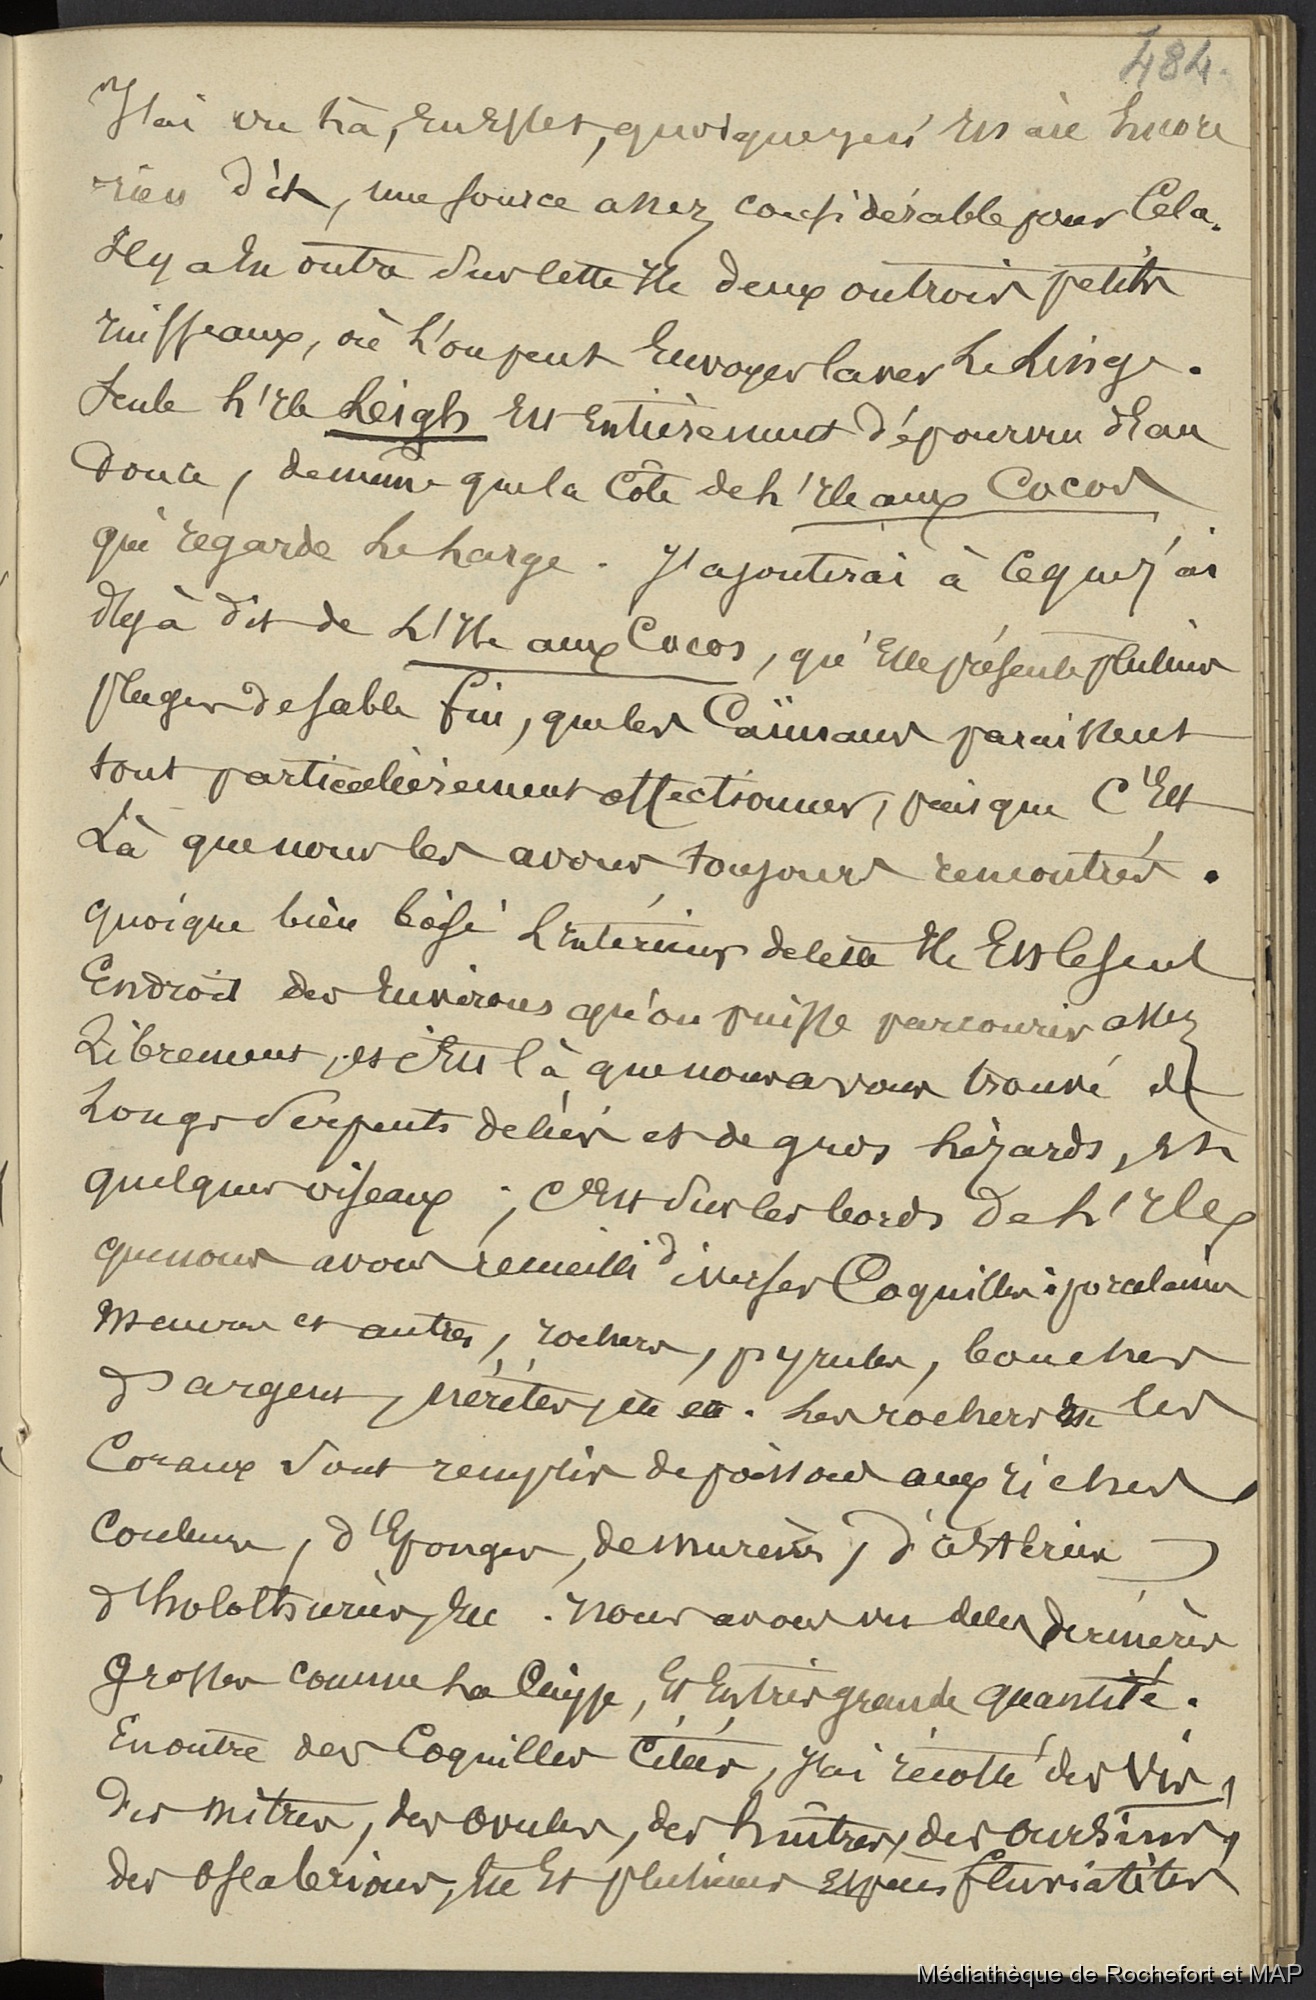 484.
J'ai vu là, en effet, quoique je n'en aie encore
rien dit, une source assez considérable pour cela.
Il y a en outre sur cette Ile deux ou trois petits
ruisseaux, où l'on peut envoyer laver le linge.
Seule l'Ile Leigh est entièrement dépourvu d'eau
douce, de même que la Côte de l'Ile aux Cocos
qui regarde le large. J'ajouterai à ce que j'ai
déjà dit de l'Ile aux Cocos, qu'elle présente plusieurs
plages de sable fin, que les Caïmans paraissent
tout particulièrement affectionner, puis que c'est
Là que nous les avons toujours rencontrés.
quoique bien boisé l'intérieur de cette Ile est le seul
Endroit des environs qu'on puisse parcourir assez
Librement, et c'est là que nous avons trouvé de
Longs Serpents deliés et de gros lézards, et
quelques oiseaux ; c'est sur les bords de l'Ile
que nous avons recueilli diverses Coquilles : porcelaines
mauves et autres, rochers, pyrules, bouches
d'argent, nérites, etc etc. Les rochers et les
Coraux sont remplis de poissons aux riches
Couleurs, d'Eponges, de murènes, d'astéries
d'holothuries, etc. Nous avons vu de ces dernières
grosses comme la Cuisse, et en très grande quantité.
En outre des Coquilles Citées, j'ai récolté des Vis,
des mitres, des ovules, des huîtres, des oursins,
des oscabrions, etc et plusieurs espèces fluviatiles
Médiathèque de Rochefort et MAP